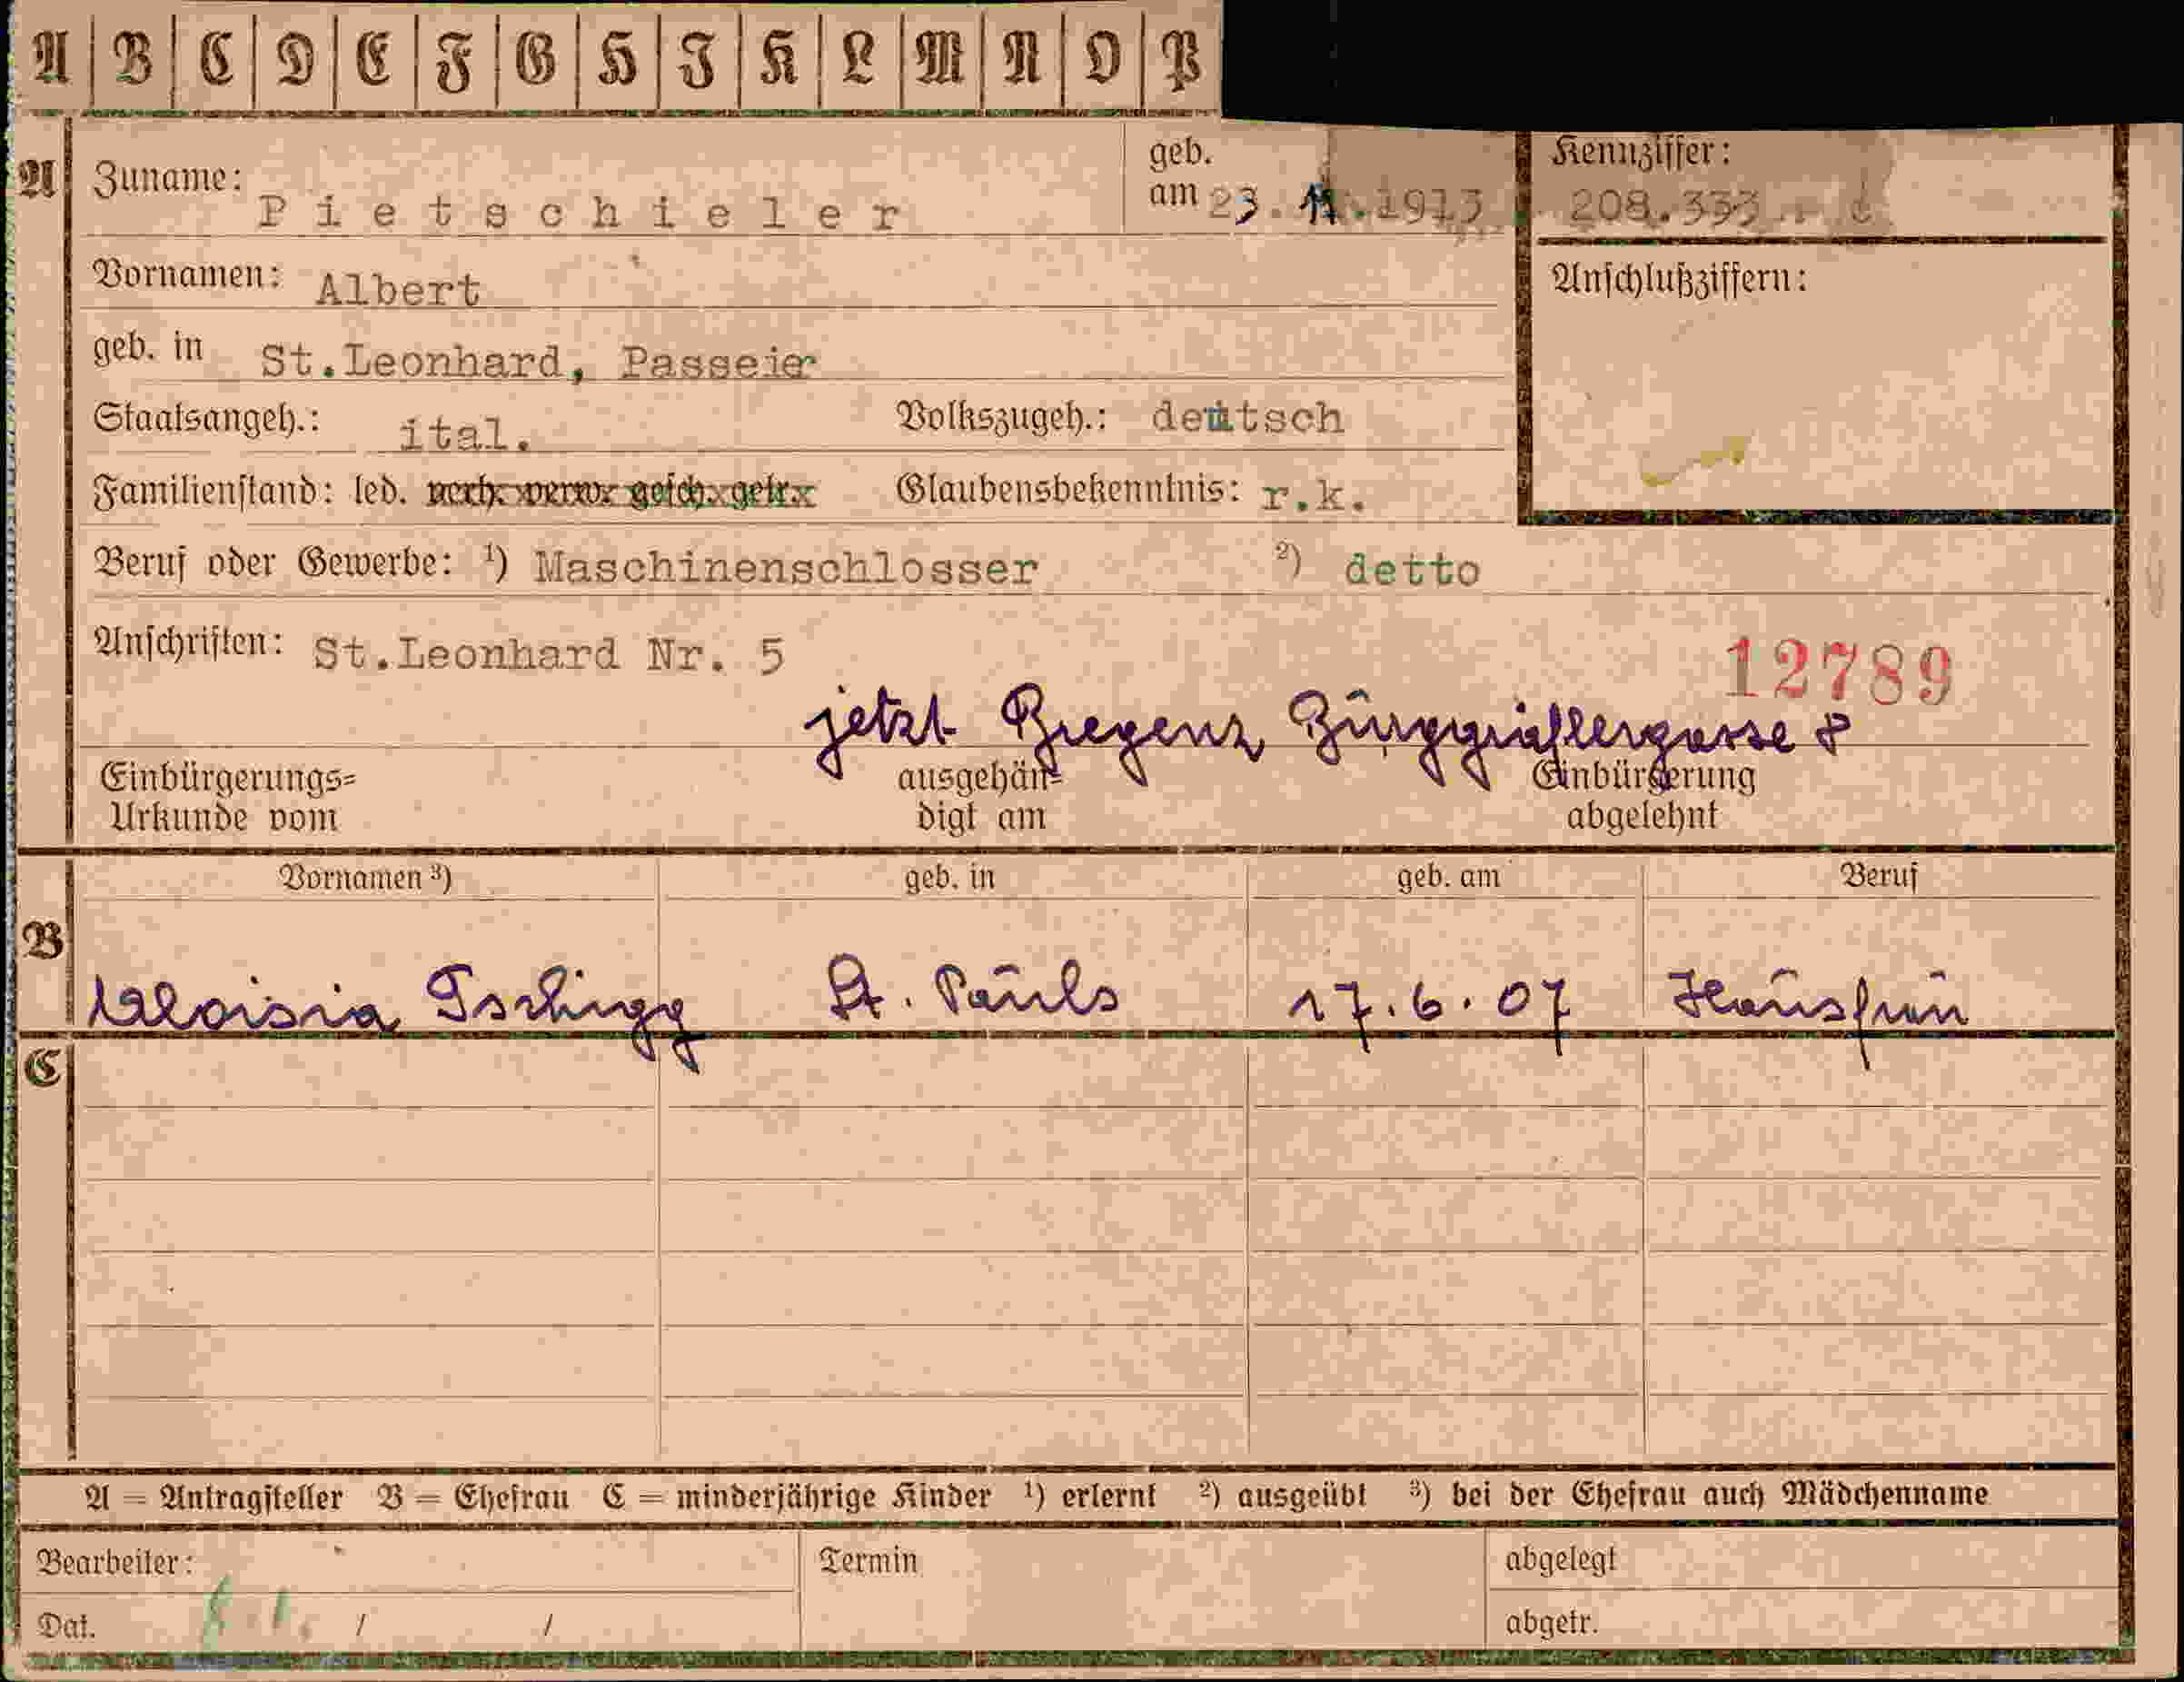 A B C D E F G H I K L M N O P
A Zuname: Pietschieler geb. am 23. 11.1913 Kennziffer: 208.333
Vornamen: Albert Anschlußziffern:
geb. in St.Leonhard, Passeier
Staatsangeh.: ital. Volkszugeh.: deutsch
Familienstand: led. verh. verw. gesch. getr. Glaubensbekenntnis: r.k.
Beruf oder Gewerbe: ¹) Maschinenschlosser ²) detto
Anschriften: St.Leonhard Nr. 5 12789
jetzt Bregenz Burggräflergasse 8
Einbürgerungs= ausgehän= Einbürgerung
Urkunde vom digt am abgelehnt
Vornamen ³) geb. in geb. am Beruf
B Aloisia Tschigg St. Pauls 17.6.07 Hausfrau
C
A = Antragsteller B = Ehefrau C = minderjährige Kinder ¹) erlernt ²) ausgeübt ³) bei der Ehefrau auch Mädchenname
Bearbeiter: Termin abgelegt
Dat. / / abgetr.